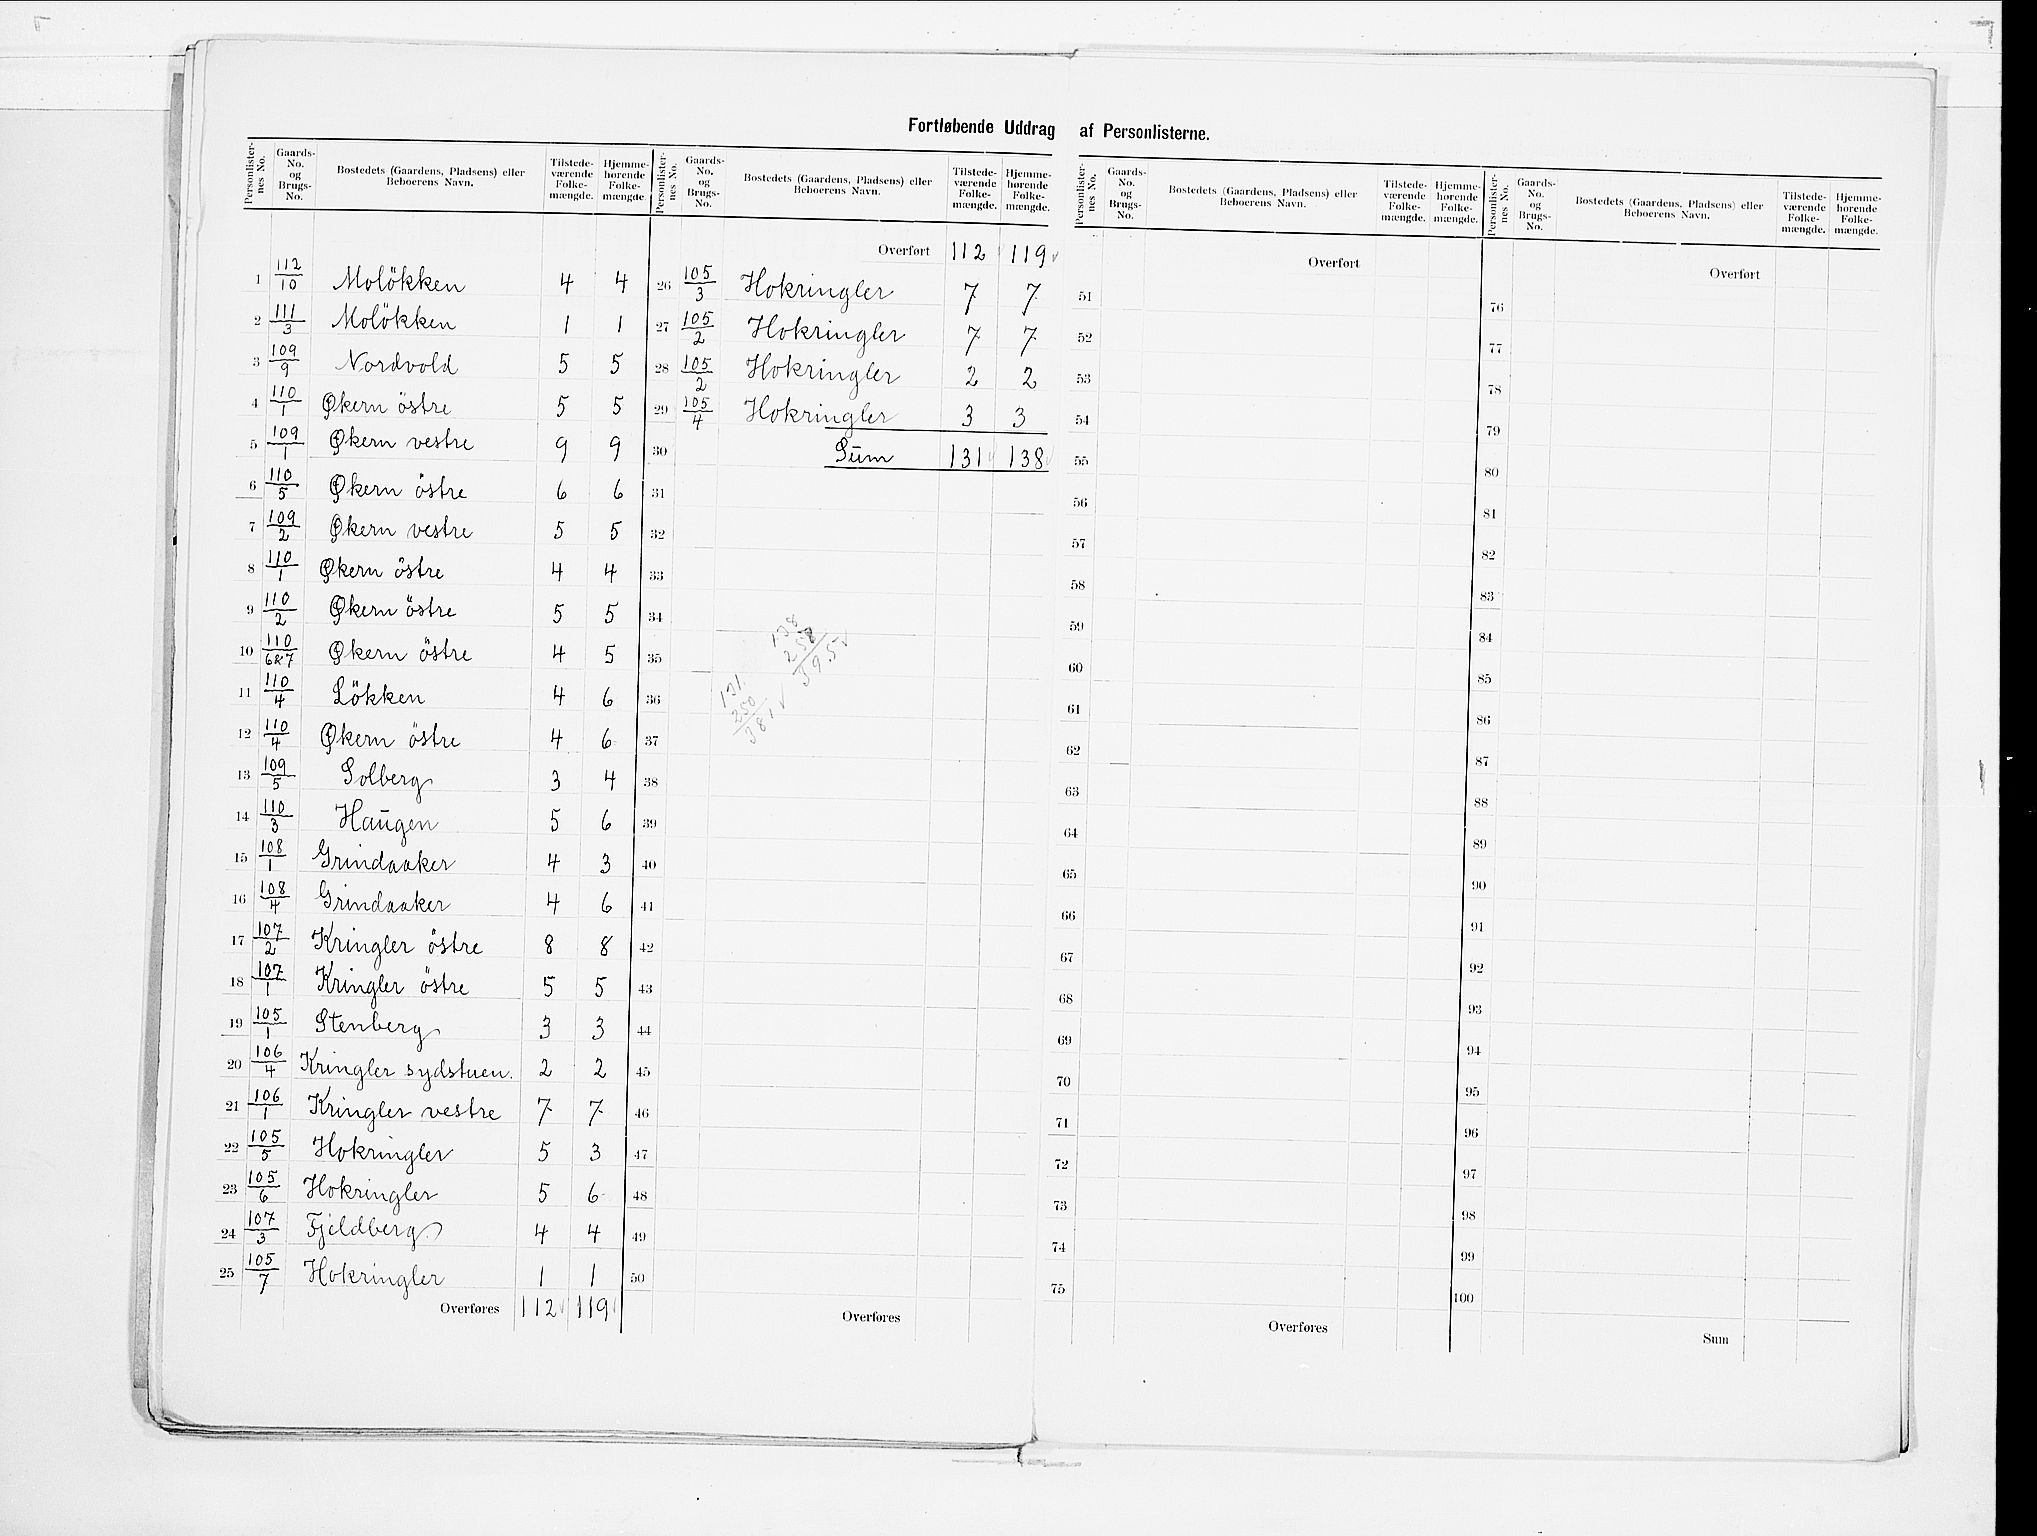 Fortløbende Uddrag af Personlisterne.
Personlister-nes No. | Gaards-No. og Brugs-No. | Bostedets (Gaardens, Pladsens) eller Beboerens Navn. | Tilstede-værende Folke-mængde. | Hjemme-hørende Folke-mængde.
1 112/10 Molökken 4 4
2 111/3 Molökken 1 1
3 109/9 Nordvold 5 5
4 110/1 Økern östre 5 5
5 109/1 Økern vestre 9 9
6 110/5 Økern östre 6 6
7 109/2 Økern vestre 5 5
8 110/1 Økern östre 4 4
9 110/2 Økern östre 5 5
10 110/6&7 Økern östre 4 5
11 110/4 Lökken 4 6
12 110/4 Økern östre 4 6
13 109/5 Solberg 3 4
14 110/3 Haugen 5 6
15 108/1 Grindaaker 4 3
16 108/4 Grindaaker 4 6
17 107/2 Kringler östre 8 8
18 107/1 Kringler östre 5 5
19 105/1 Stenberg 3 3
20 106/4 Kringler sydstuen. 2 2
21 106/1 Kringler vestre 7 7
22 105/5 Hokringler 5 3
23 105/6 Hokringler 5 6
24 107/3 Fjeldberg 4 4
25 105/7 Hokringler 1 1
Overføres 112 119
Personlister-nes No. | Gaards-No. og Brugs-No. | Bostedets (Gaardens, Pladsens) eller Beboerens Navn. | Tilstede-værende Folke-mængde. | Hjemme-hørende Folke-mængde.
Overført 112 119
26 105/3 Hokringler 7 7
27 105/2 Hokringler 7 7
28 105/2 Hokringler 2 2
29 105/4 Hokringler 3 3
30 Sum 131 138
31
32
33
34
35
36
37
38
39
40
41
42
43
44
45
46
47
48
49
50
138
258
395
131
250
381
Overføres
Personlister-nes No. | Gaards-No. og Brugs-No. | Bostedets (Gaardens, Pladsens) eller Beboerens Navn. | Tilstede-værende Folke-mængde. | Hjemme-hørende Folke-mængde.
Overført
51
52
53
54
55
56
57
58
59
60
61
62
63
64
65
66
67
68
69
70
71
72
73
74
75
Overføres
Personlister-nes No. | Gaards-No. og Brugs-No. | Bostedets (Gaardens, Pladsens) eller Beboerens Navn. | Tilstede-værende Folke-mængde. | Hjemme-hørende Folke-mængde.
Overført
76
77
78
79
80
81
82
83
84
85
86
87
88
89
90
91
92
93
94
95
96
97
98
99
100
Sum